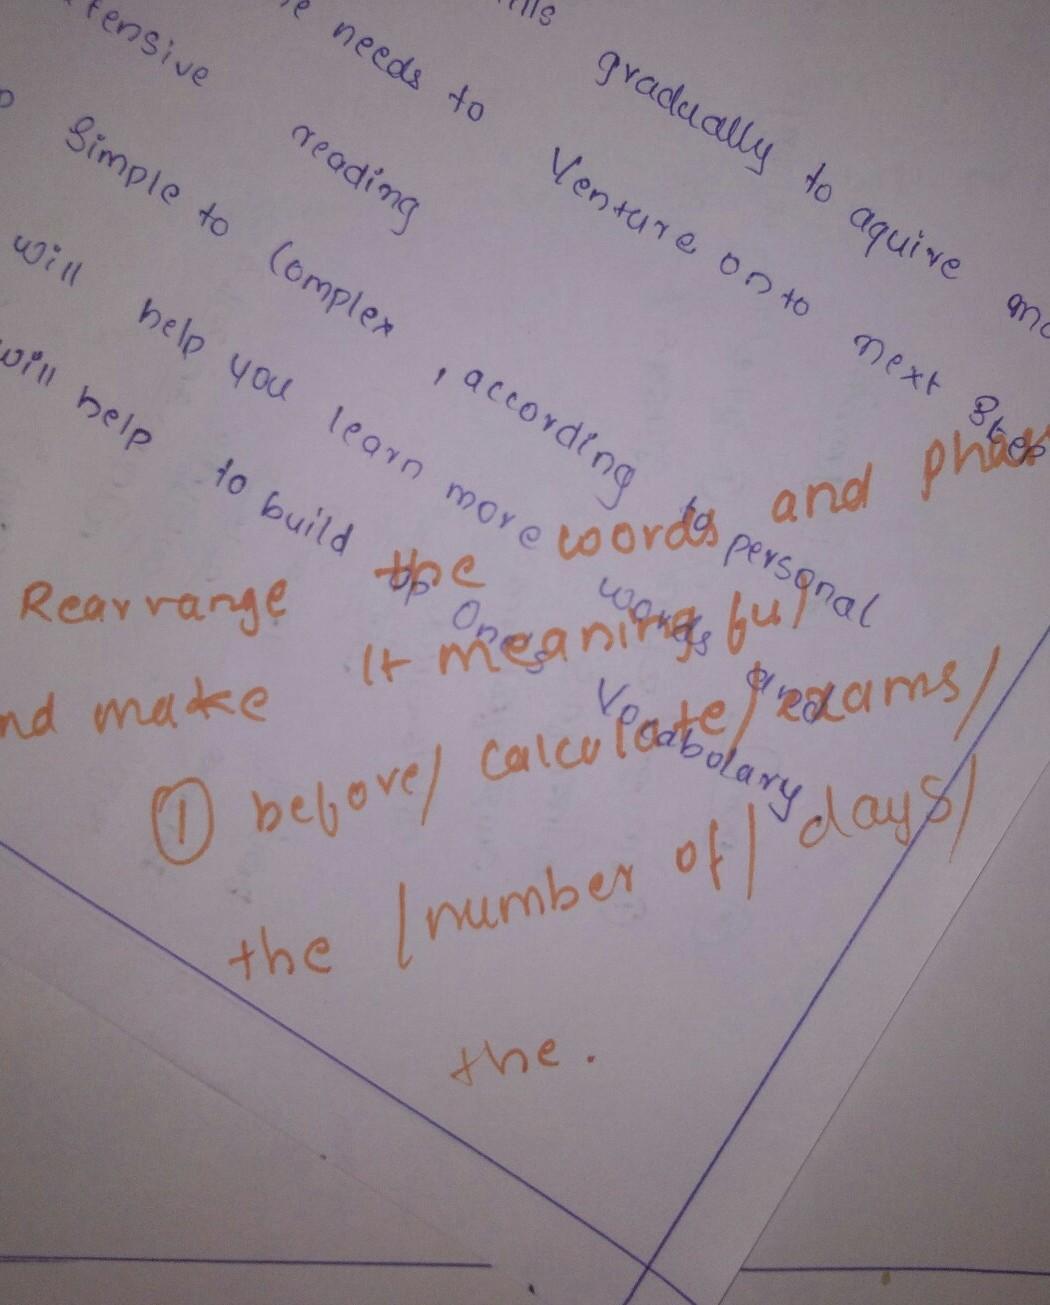 gradually to aquire
needs to Venture onto next Step
reading
Simple to Complex, according to personal
will help you learn more words and
will help to build up Ones Vocabolary
Rearrange the words and
make It meaningful
① before/ calculate/ exams/
the /number of/ days/
the.